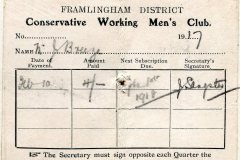 FRAMLINGHAM DISTRICT
Conservative Working Men's Club.
No. 1917
NAME Mr J Breeze
Date of Payment. Amount Paid Next Subscription Due. Secretary's Signature.
Feb 10 4/- 1918 J.
The Secretary must sign opposite each Quarter the